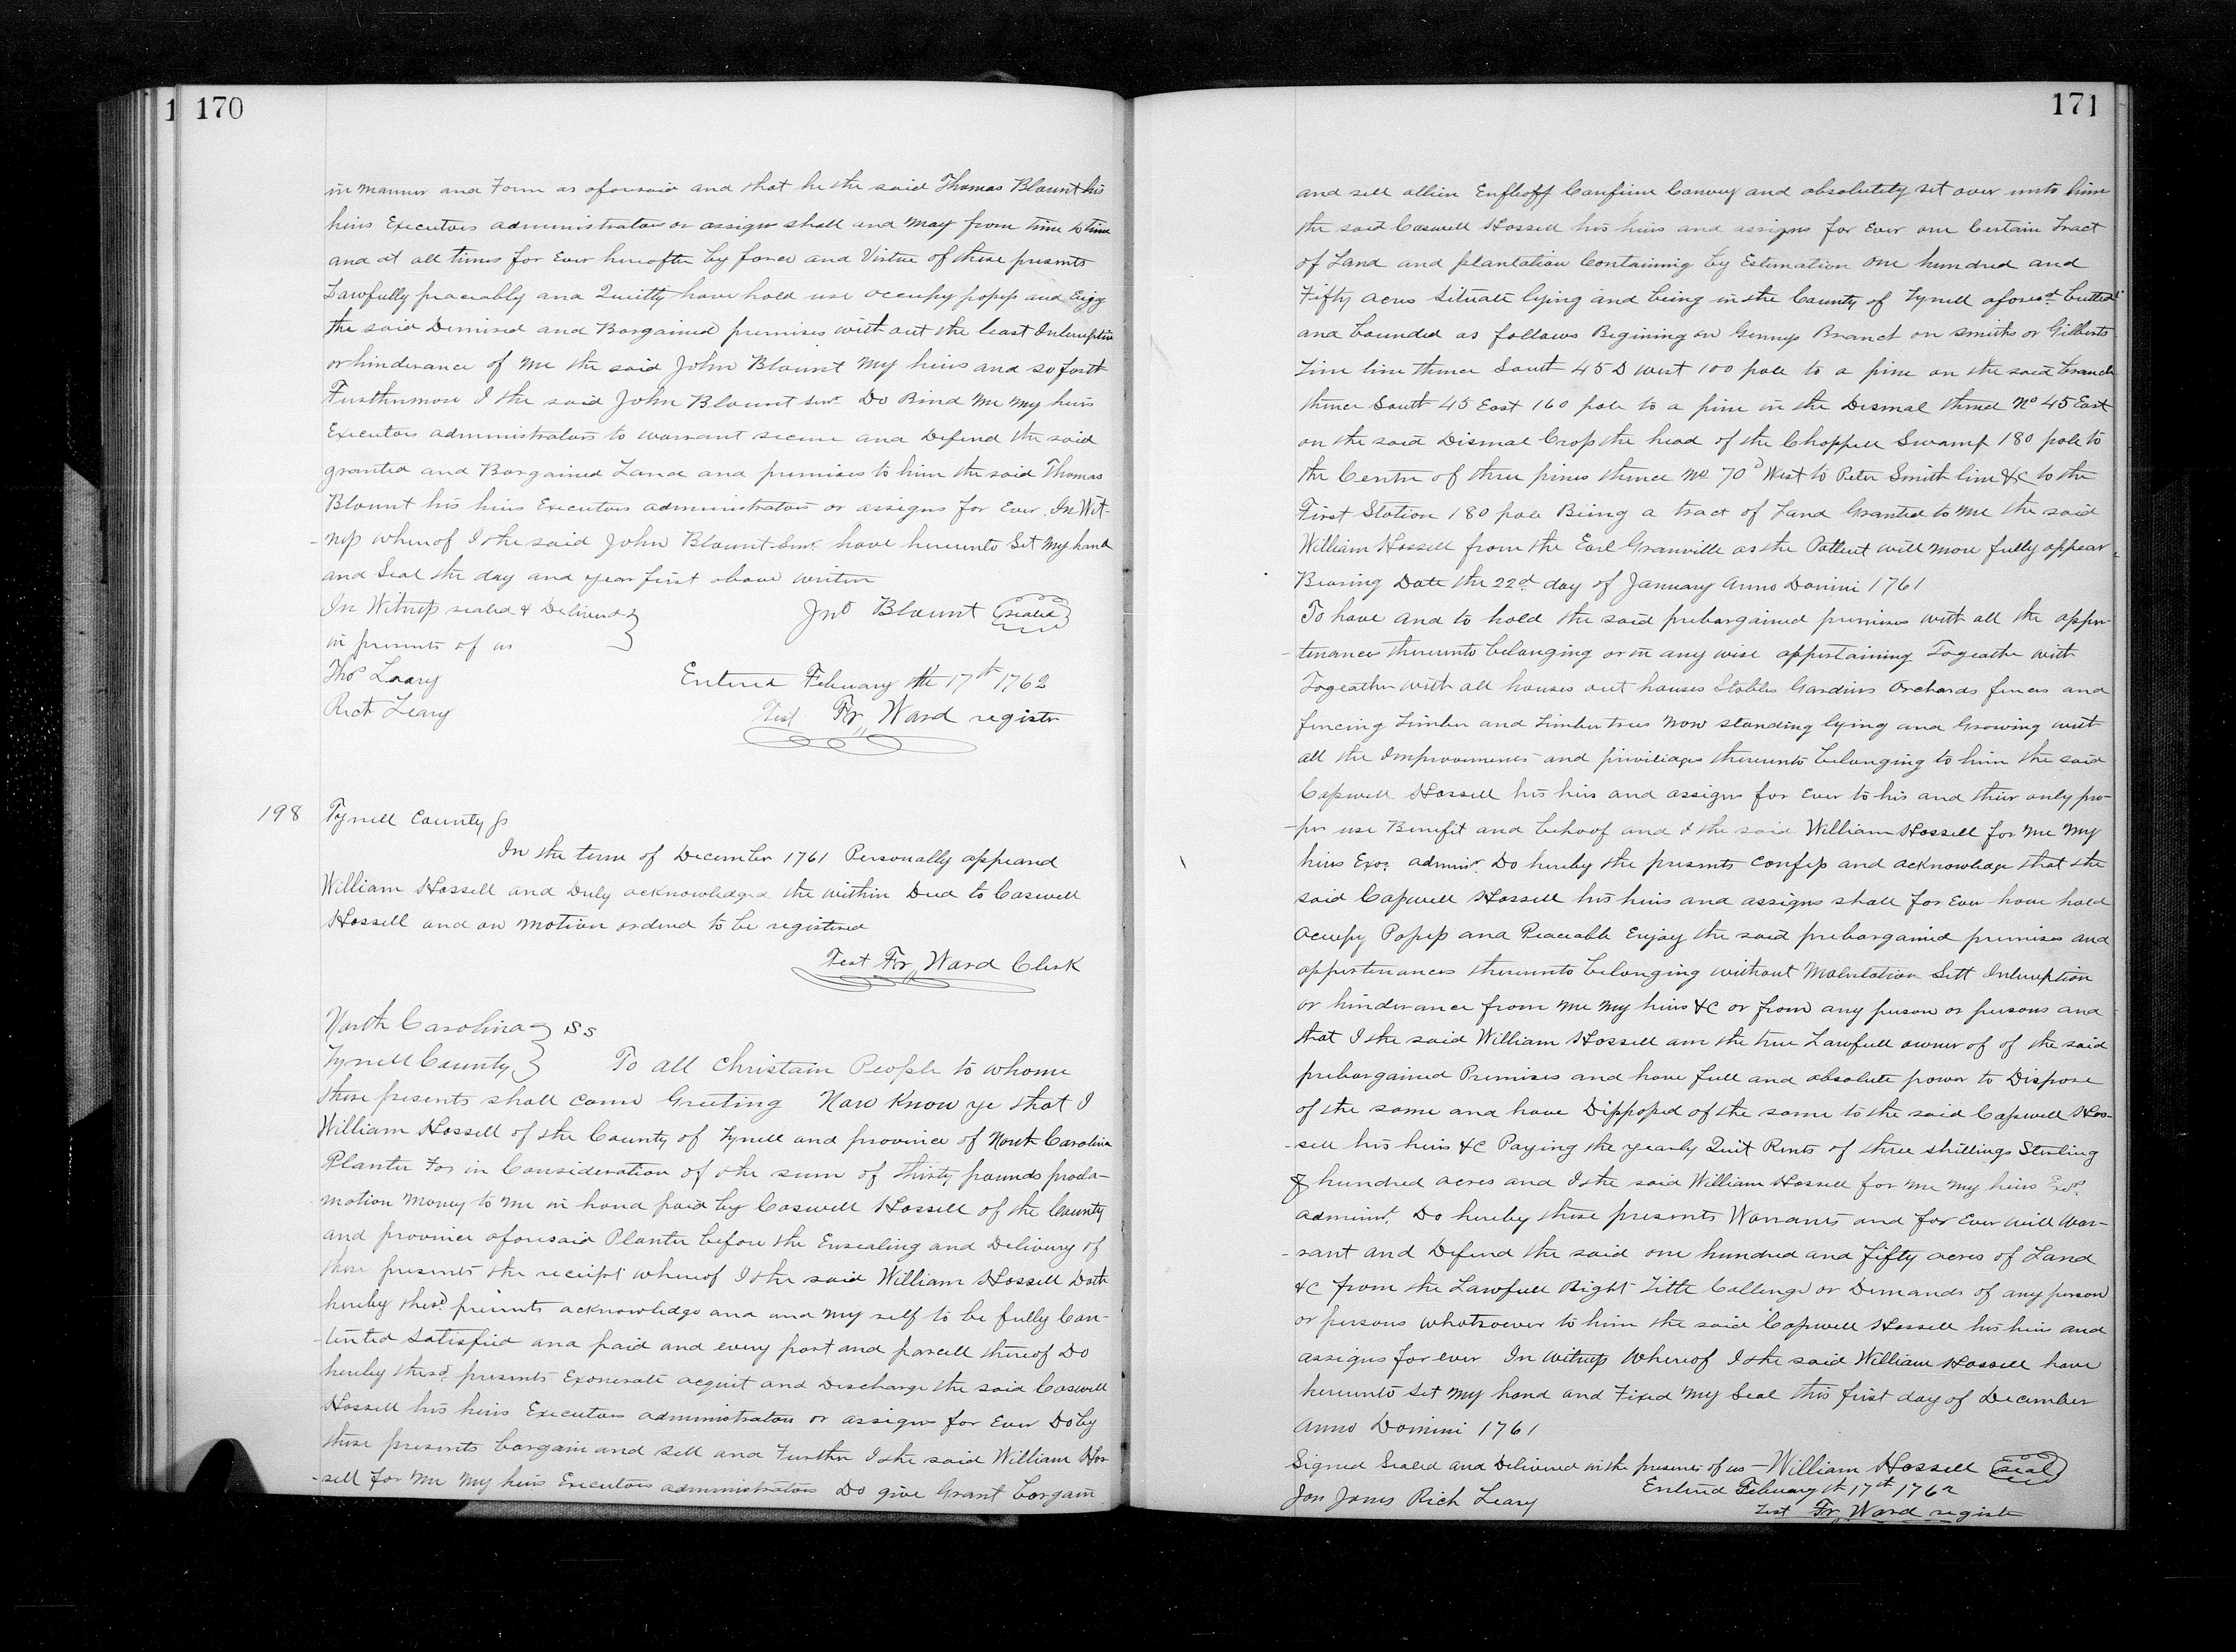 170
in manner and Form as aforesaid and that he the said Thomas Blount his
heirs Executors administrators or assigns shall and may from time to time
and at all times for Ever hereafter by force and Virtue of these presents
Lawfully peaceably and Quietly have hold use occupy posess and Enjoy
the said Demised and Bargained premises with out the least Interuption
or hinderance of me the said John Blount my heirs and so forth
Furthermore I the said John Blount Senr Do Bind me my heirs
Executors administrators to warrant secure and Defend the said
granted and Bargained Land and premises to him the said Thomas
Blount his heirs Executors administrators or assigns for Ever. In Wit-
-ness whereof I the said John Blount Senr. have hereunto Set my hand
and Seal the day and year first above writen
In Witness sealed & Delivered } Jno Blount (sealed)
in presents of us
Thos Leary Entered February the 17th 1762
Rich Leary Test Fr,, Ward register
198 Tyrrell County ss
In the term of December 1761 Personally appeared
William Hossell and Duly acknowledged the within Deed to Caswell
Hossell and on motion ordered to be registered
Test Fr,, Ward Clerk
North Carolina } SS
Tyrrell County } To all Christain People to whome
these presents shall come Greeting Now Know ye that I
William Hossell of the County of Tyrrell and province of North Carolina
Planter For in Consideration of the sum of thirty pounds procla-
mation money to me in hand paid by Caswell Hossell of the County
and province aforesaid Planter before the Ensealing and Delivery of
these presents the receipt whereof I the said William Hossell Doth
hereby thesd. presents acknowledge and and my self to be fully Con-
-tented Satisfied and paid and every part and parcell thereof Do
hereby thesd. presents Exonerate acquit and Discharge the said Caswell
Hossell his heirs Executors administrators or assigns for Ever Do by
these presents bargain and sell and Further I the said William Hos-
-sell for me my heirs Executors administrators Do give Grant bargain
171
and sell allien Enfleoff Confirm Convey and absolutely set over unto him
the said Caswell Hossell his heirs and assigns for Ever one Certain Tract
of Land and plantation Containing by Estimation one hundred and
Fifty acres Situate lying and being in the County of Tyrrell aforesd. butted
and bounded as follows Begining on Gennys Branch on Smiths or Gilberts
Line line thence South 45 D West 100 pole to a pine on the said branch
thence South 45 East 160 pole to a pine in the Dismal thence No 45 East
on the said Dismal Cross the head of the Choppell Swamp 180 pole to
the Centre of three pines thence No 70 D West to Peter Smith line &C to the
First Station 180 pole Being a tract of Land Granted to me the said
William Hossell from the Earl Granville as the Pattent will more fully appear
Bearing Date the 22d. day of January Anno Domini 1761
To have and to hold the said prebargained premises with all the appur-
-tenances thereunto belonging or in any wise appertaining Togeather with
Togeather with all houses out houses Stables Gardins Orchards fences and
fencing Timber and Timber trees now standing lying and Growing with
all the Improvements and priviliages thereunto belonging to him the said
Casswell Hossell his heirs and assigns for Ever to his and their only pro-
-per use Benefit and behoof and I the said William Hossell for me my
heirs Exos. adminr. Do hereby the presents confess and acknowledge that the
said Casswell Hossell his heirs and assigns shall for Ever have hold
Occupy Posess and Peaceable Enjoy the said prebargained premises and
appertenances thereunto belonging without Molestation Sett Interuption
or hinderance from me my heirs &C or from any person or persons and
that I the said William Hossell am the true Lawfull owner of of the said
prebargained Premises and have full and absolute power to Dispose
of the same and have Disspossed of the same to the said Casswell Hos-
-sell his heirs &C Paying the yearly Quit Rents of three shillings Sterling
⅌ hundred acres and I the said William Hossell for me my heirs Exor.
adminst. Do hereby these presents Warrants and for Ever will War-
-rant and Defend the said one hundred and fifty acres of Land
&C from the Lawfull Right Title Collings or Demands of any person
or persons whatsoever to him the said Casswell Hossell his heirs and
assigns for ever In witness Whereof I the said William Hossell have
hereunto Set my hand and Fixed my Seal this first day of December
Anno Domini 1761
Signed Sealed and Delivered in the presents of us — William Hossell (Seal)
Jon Jones Rich Leary Entered February th 17th 1762
Test Fr,, Ward registr